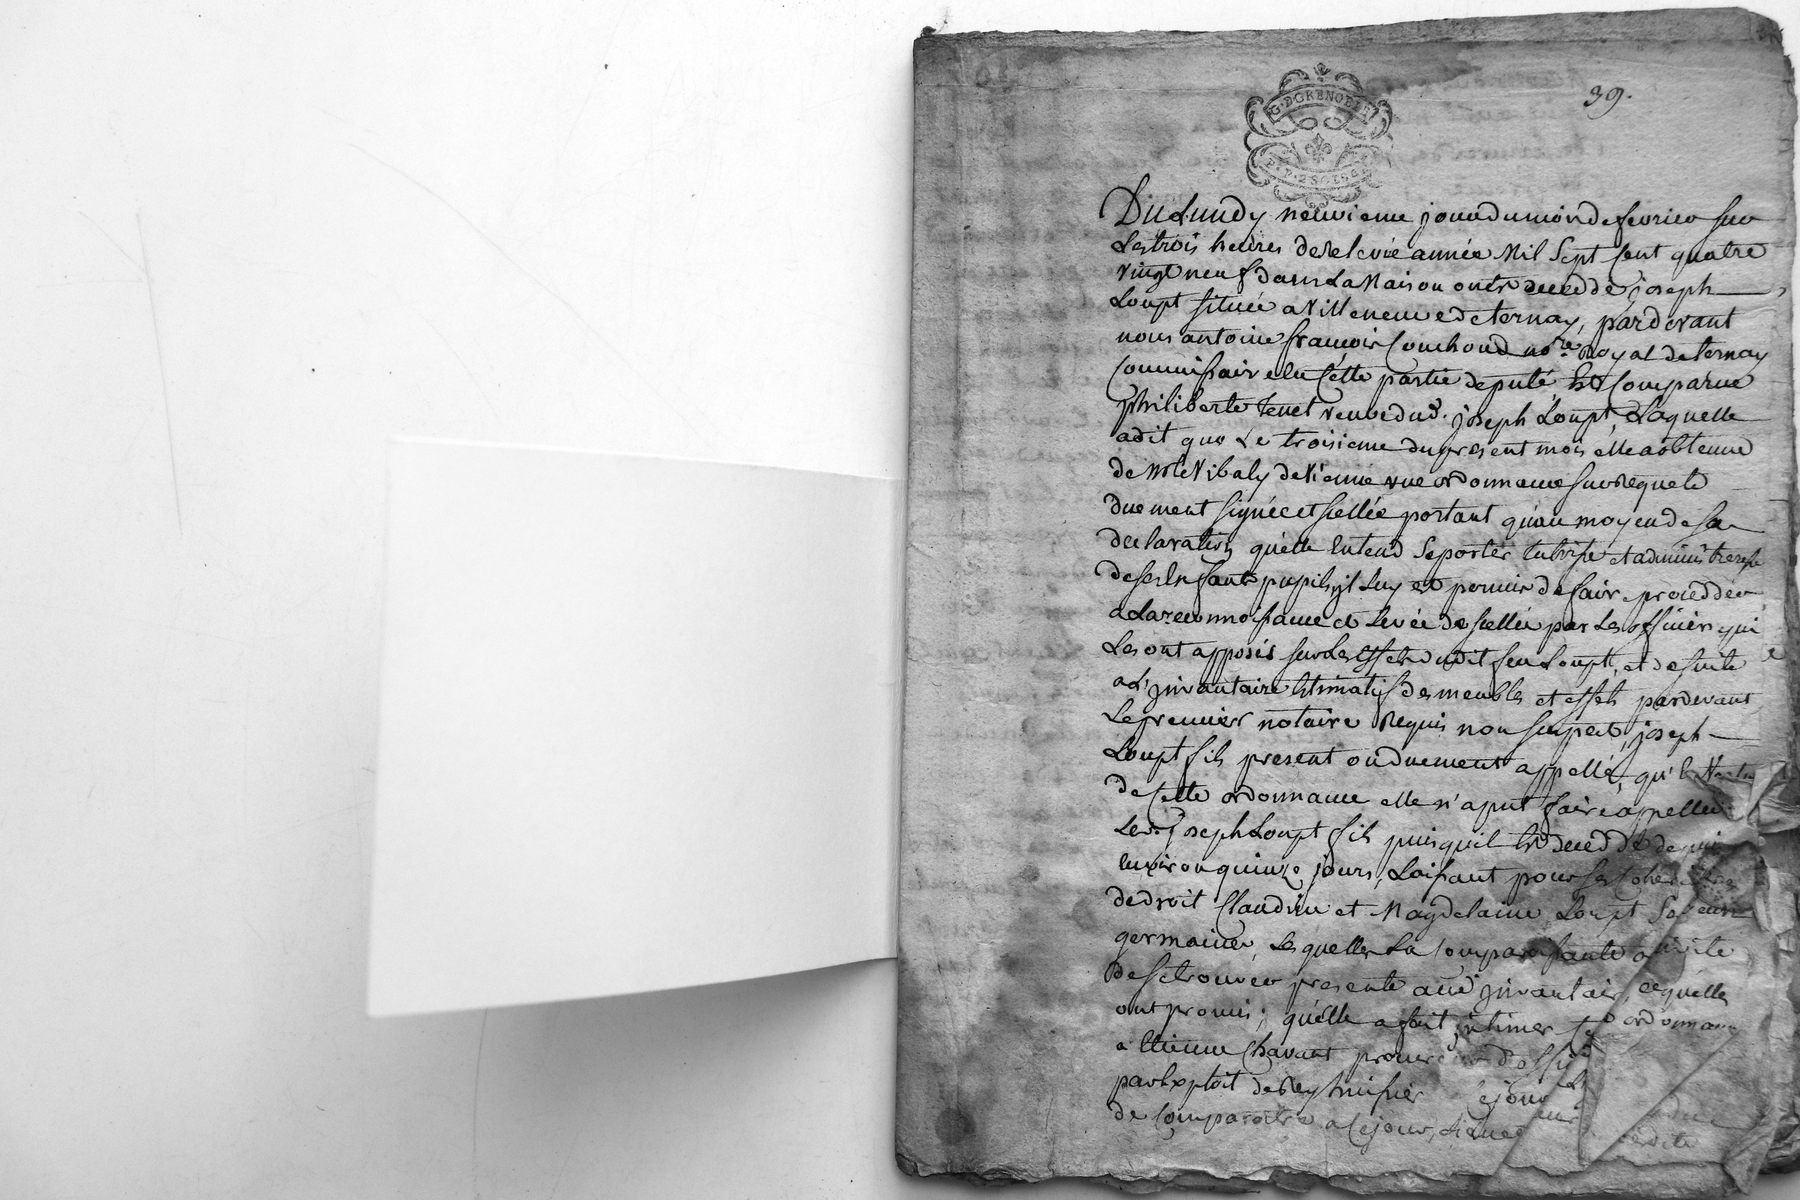 G. D GRENOBLE
39.
Du Lundy neuvieme jour du mois de fevrier sur
Les trois heures de Relevée année Mil Sept Cent quatre
vingt neuf dans La Maison ou est decedde joseph
Loupt située a Villeneuve de ternay, pardevant
nous antoine françois Couchoud no.re Royal de ternay
Commissaire en Cette partie deputé, Est Comparue
philiberte tenet veuve dud. joseph Loupt, Laquelle
a dit que Le troisieme du present mois elle a obtenue
de Mr de Vienne une ordonnance sur Requete
duement signée et sçellée portant qu'au moyen de sa
declaration qu'elle Entend se porter tutrisse et administreresse
de ses Enfants pupils, il Luy est permis de faire proceddér
a La reconnoissance et Levée de sçellés par Les officiers qui
Les ont apposés sur Les effets dudit feu Loupt, et de suite
a L'jnvantaire Estimatif des meubles et effets pardevant
Le premier notaire Requis non suspect, joseph
Loupt fils present ou duement appellé, qu'En
de Cette ordonnance elle n'a put faire appeller
Led. joseph Loupt fils puisqu'il Est deceddé depuis
Environ quinze jours, Laissant pour ses
de droit Claudine et Magdelaine Loupt ses sœurs
germaines, Lesquelles La Comparoissante a invité
de se trouver presente aud jnvantaire, ce qu'elles
ont promis; qu'elle a fait jntimer ordonnance
a Etienne Chavant d'office
par Exploit de Rey huissier
de Comparoitre a Ce jour,